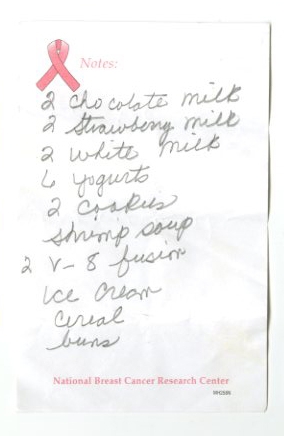 Notes:
2 chocolate milk
2 Strawberry milk
2 white milk
6 yogurts
2 cookies
shrimp soup
2 V-8 fusion
Ice Cream
Cereal
buns
National Breast Cancer Research Center